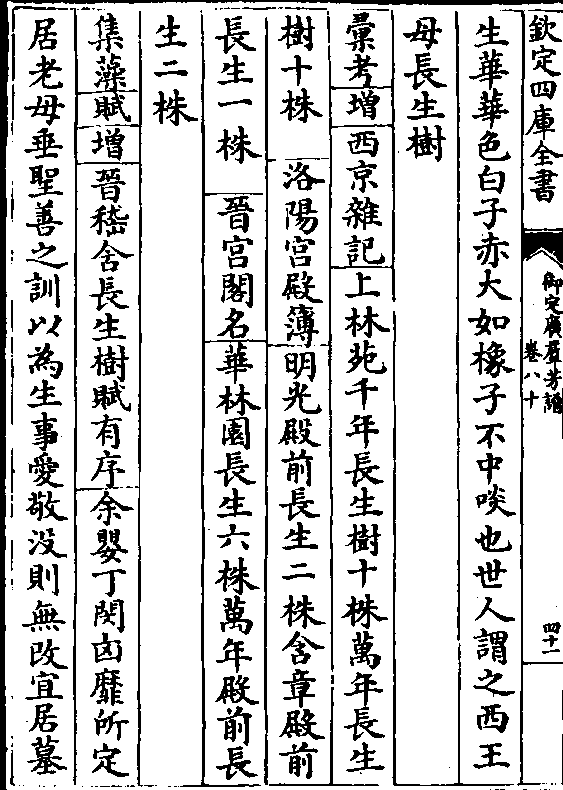 欽定四庫全書
御定廣羣芳譜
卷八十
四十一
生華華色白子赤大如橡子不中啖也世人謂之西王
母長生樹
彚考增西京雜記上林苑千年長生樹十株萬年長生
樹十株 洛陽宫殿簿明光殿前長生二株含章殿前
長生一株 晉宫閣名華林園長生六株萬年殿前長
生二株
集藻賦增晉嵇含長生樹賦有序余嬰丁閔凶靡所定
居老母垂聖善之訓以為生事愛敬没則無改宜居墓